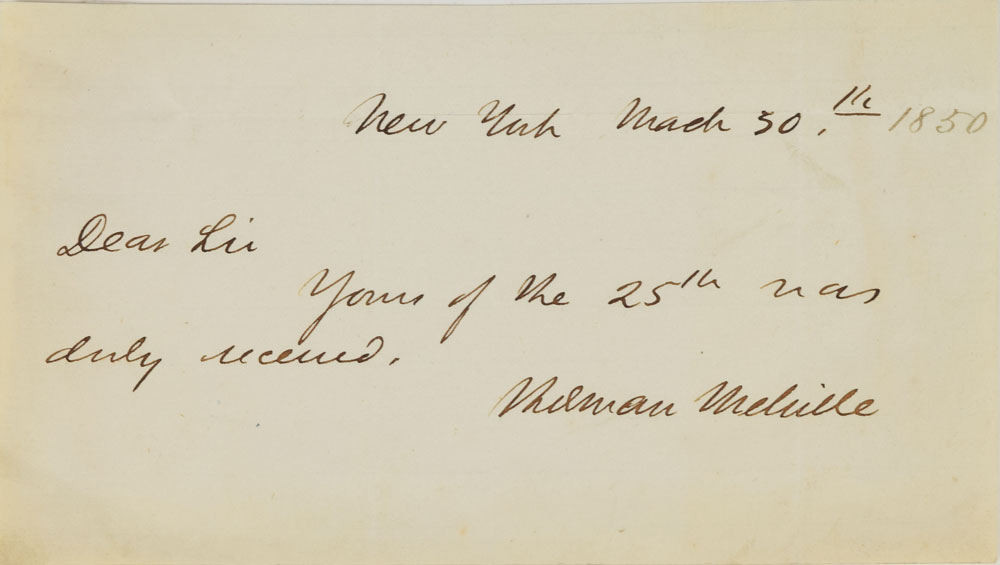 New York March 30.th 1850
Dear Sir
Yours of the 25th was
duly received.
Herman Melville